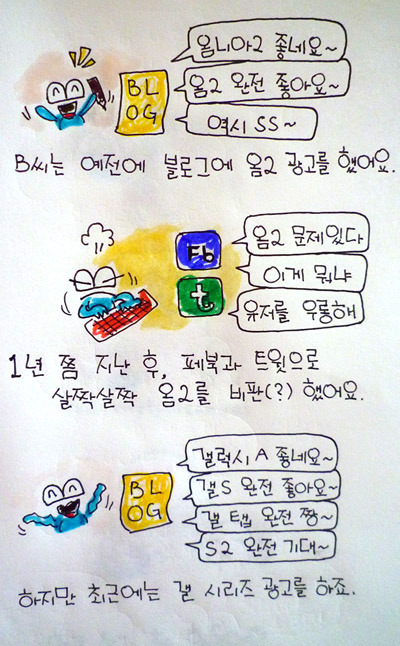 BL
OG
옴니아2 좋네요~
옴2 완전 좋아요~
역시 SS~
B씨는 예전에 블로그에 옴2 광고를 했어요.
Fb
t
옴2 문제있다
이게 뭐냐
유저를 우롱해
1년 쯤 지난 후, 페북과 트윗으로
살짝살짝 옴2를 비판(?) 했어요.
BL
OG
갤럭시A 좋네요~
갤S 완전 좋아요~
갤탭 완전 짱~
S2 완전 기대~
하지만 최근에는 갤 시리즈 광고를 하죠.